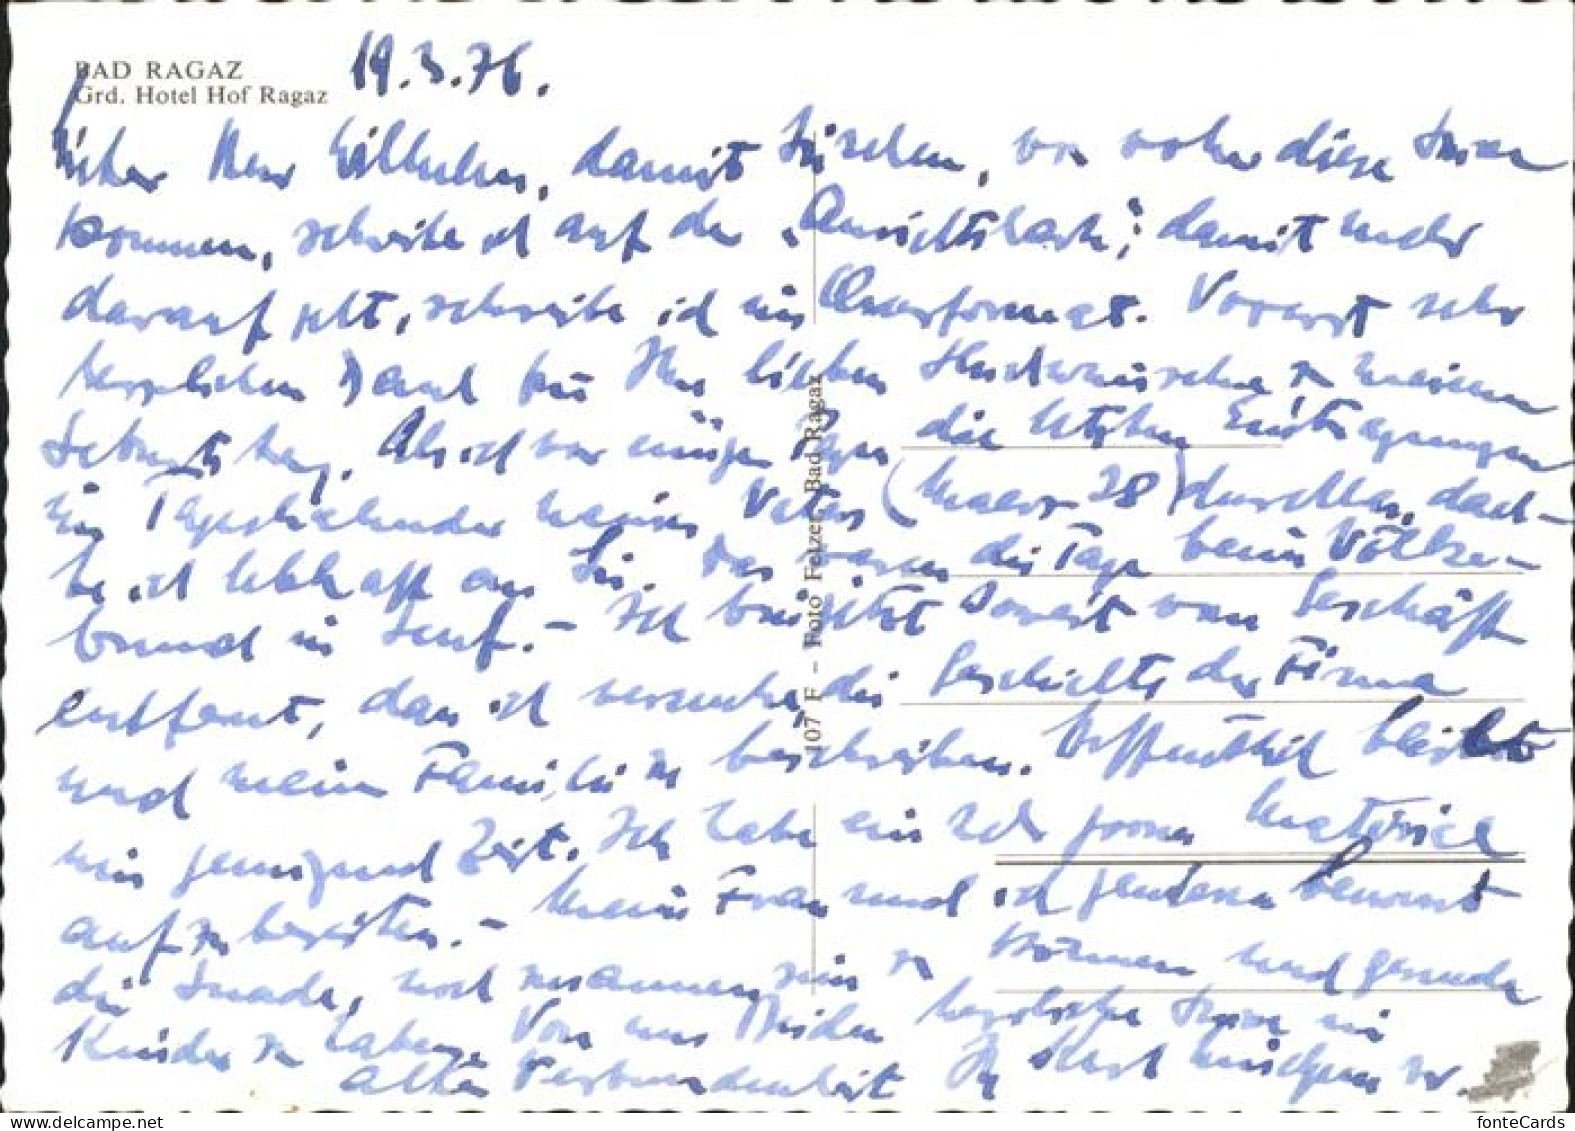 BAD RAGAZ
Grd. Hotel Hof Ragaz
19.3.76.
Lieber Herr Wilhelm, damit Sie sehen, von woher diese Grüsse
kommen, schreibe ich auf der „Ansichtskarte"; damit mehr
darauf geht, schreibe ich im Querformat. Vorerst sehr
herzlichen Dank für Ihre lieben Glückwünsche zu meinem
Geburtstag. Als ich vor einigen Tagen die letzten Eintragungen
im Taschenkalender meines Vaters (März 28) durchlas, dach-
te ich lebhaft an Sie. Das waren die Tage beim Völker-
bund in Genf. – Ich bin jetzt soweit vom Geschäft
entfernt, dass ich versuche, die Geschichte der Firma
und meiner Familie zu beschreiben. Hoffentlich bleibt
mir genügend Zeit. Ich habe ein sehr grosses Material
aufzubereiten. – Meine Frau und ich geniessen bewusst
die Gnade, noch zusammen sein zu können und gesunde
Kinder zu haben. Von uns Beiden herzliche Grüsse in
alter Verbundenheit Ihr
107 F – Foto Fetzer, Bad Ragaz
fonteCards